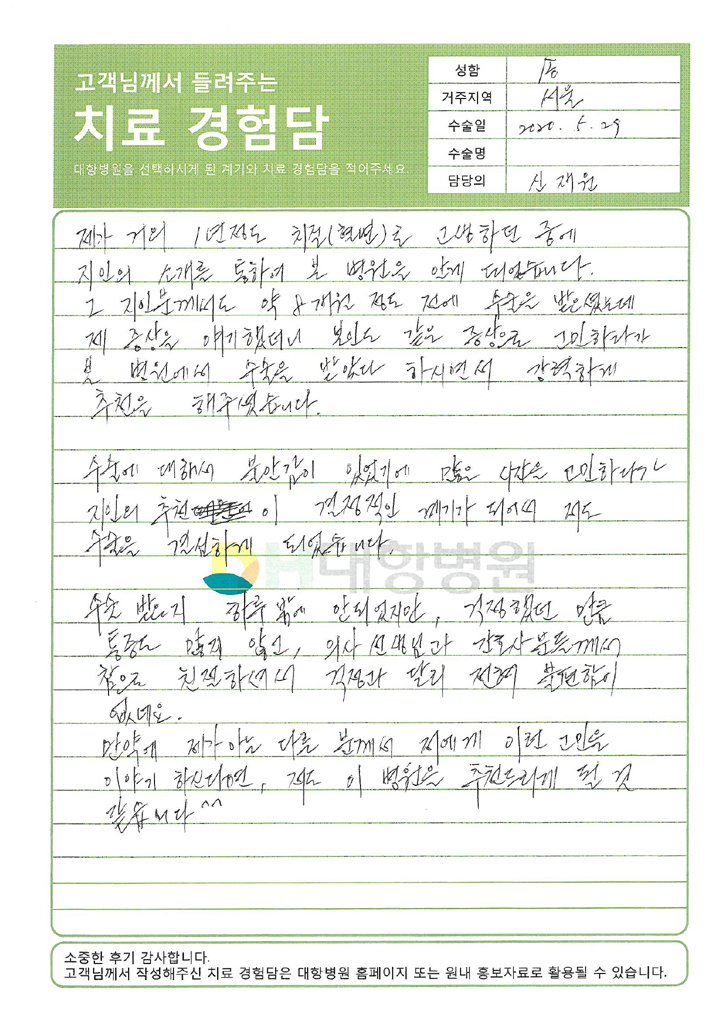 고객님께서 들려주는
치료 경험담
대항병원을 선택하시게 된 계기와 치료 경험담을 적어주세요.
성함
거주지역 서울
수술일 2020. 5. 29
수술명
담당의 신재원
제가 거의 1년정도 치질(혈변)로 고생하던 중에
지인의 소개를 통하여 본 병원을 알게 되었습니다.
그 지인분께서도 약 8개월 정도 전에 수술을 받으셨는데
제 증상을 얘기했더니 본인도 같은 증상으로 고민하다가
본 병원에서 수술을 받았다 하시면서 강력하게
추천을 해주셨습니다.
수술에 대해서 불안감이 있었기에 많은 시간을 고민하다가
지인의 추천이 결정적인 계기가 되어서 저도
수술을 결심하게 되었습니다.
DH대항병원
수술 받은지 하루 밖에 안되었지만, 걱정했던 만큼
통증도 많지 않고, 의사 선생님과 간호사분들께서
참으로 친절하셔서 걱정과 달리 전혀 불편함이
없네요.
만약에 제가아닌 다른 분께서 저에게 이런 고민을
이야기 하신다면, 저도 이 병원을 추천드리게 될 것
같습니다^^
소중한 후기 감사합니다.
고객님께서 작성해주신 치료 경험담은 대항병원 홈페이지 또는 원내 홍보자료로 활용될 수 있습니다.